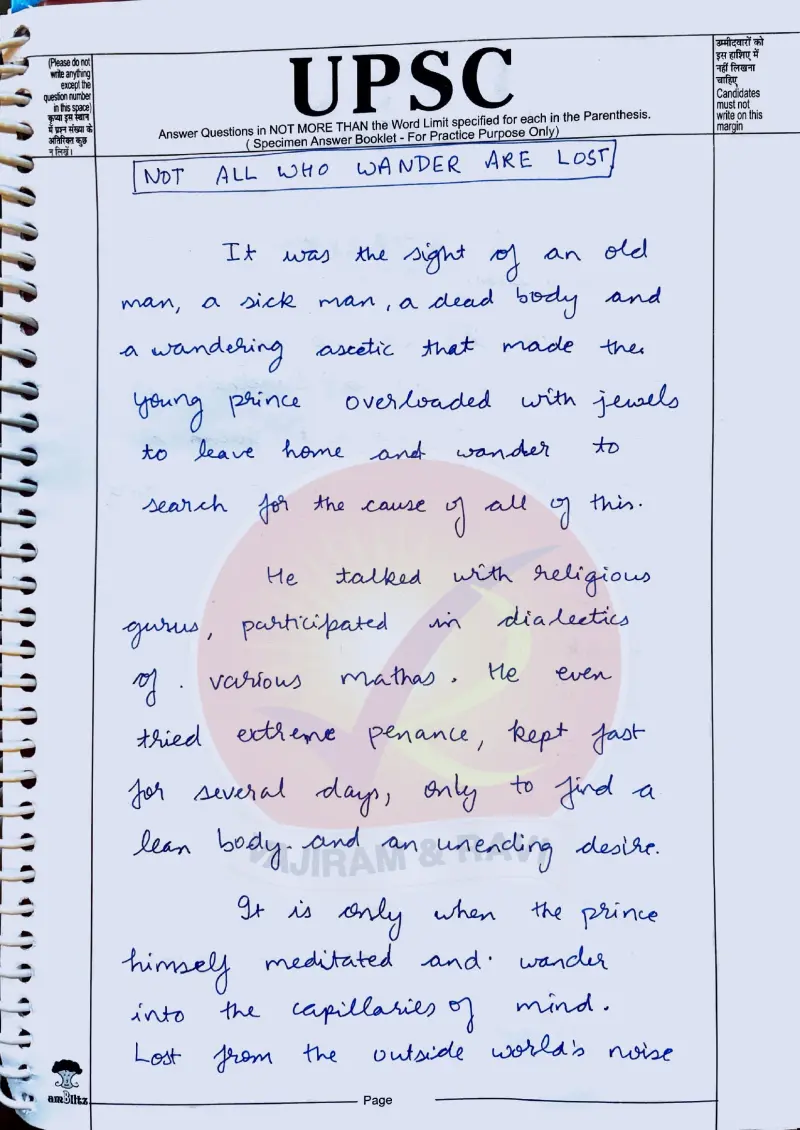 (Please do not
write anything
except the
question number
in this space)
कृपया इस स्थान
में प्रश्न संख्या के
अतिरिक्त कुछ
न लिखें।
UPSC
Answer Questions in NOT MORE THAN the Word Limit specified for each in the Parenthesis.
( Specimen Answer Booklet - For Practice Purpose Only)
उम्मीदवारों को
इस हाशिए में
नहीं लिखना
चाहिए
Candidates
must not
write on this
margin
NOT ALL WHO WANDER ARE LOST
It was the sight of an old
man, a sick man, a dead body and
a wandering ascetic that made the
young prince overloaded with jewels
to leave home and wander to
search for the cause of all of this.
He talked with religious
gurus, participated in dialectics
of various mathas. He even
tried extreme penance, kept fast
for several days, only to find a
lean body and an unending desire.
VAJIRAM & RAVI
It is only when the prince
himself meditated and wander
into the capillaries of mind.
Lost from the outside world's noise
amBlitz
Page